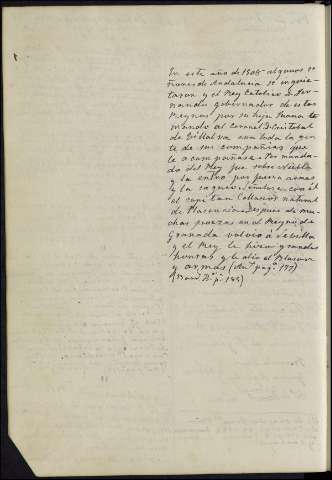 En este año de 1508 algunos se
ñores de Andalucia se inquie-
taron y el Rey Catolico D. Fer-
nando gobernador de estos
Reynos por su hija Juana
mandó al coronel D. Cristobal
de Villalva con toda la gen
te de sus compañias que
le acompañase. Por manda-
do del Rey fue sobre Niebla
y la entró por fuerza armas
y la saqueó, con él
el capitan natural
de Plasencia. Despues de mu-
chas proezas en el Reyno de
Granada volvió á Sevilla
y el Rey le hizo grandes
honras y le dio el Blason
y armas (An. pag. 177)
pº. 183)